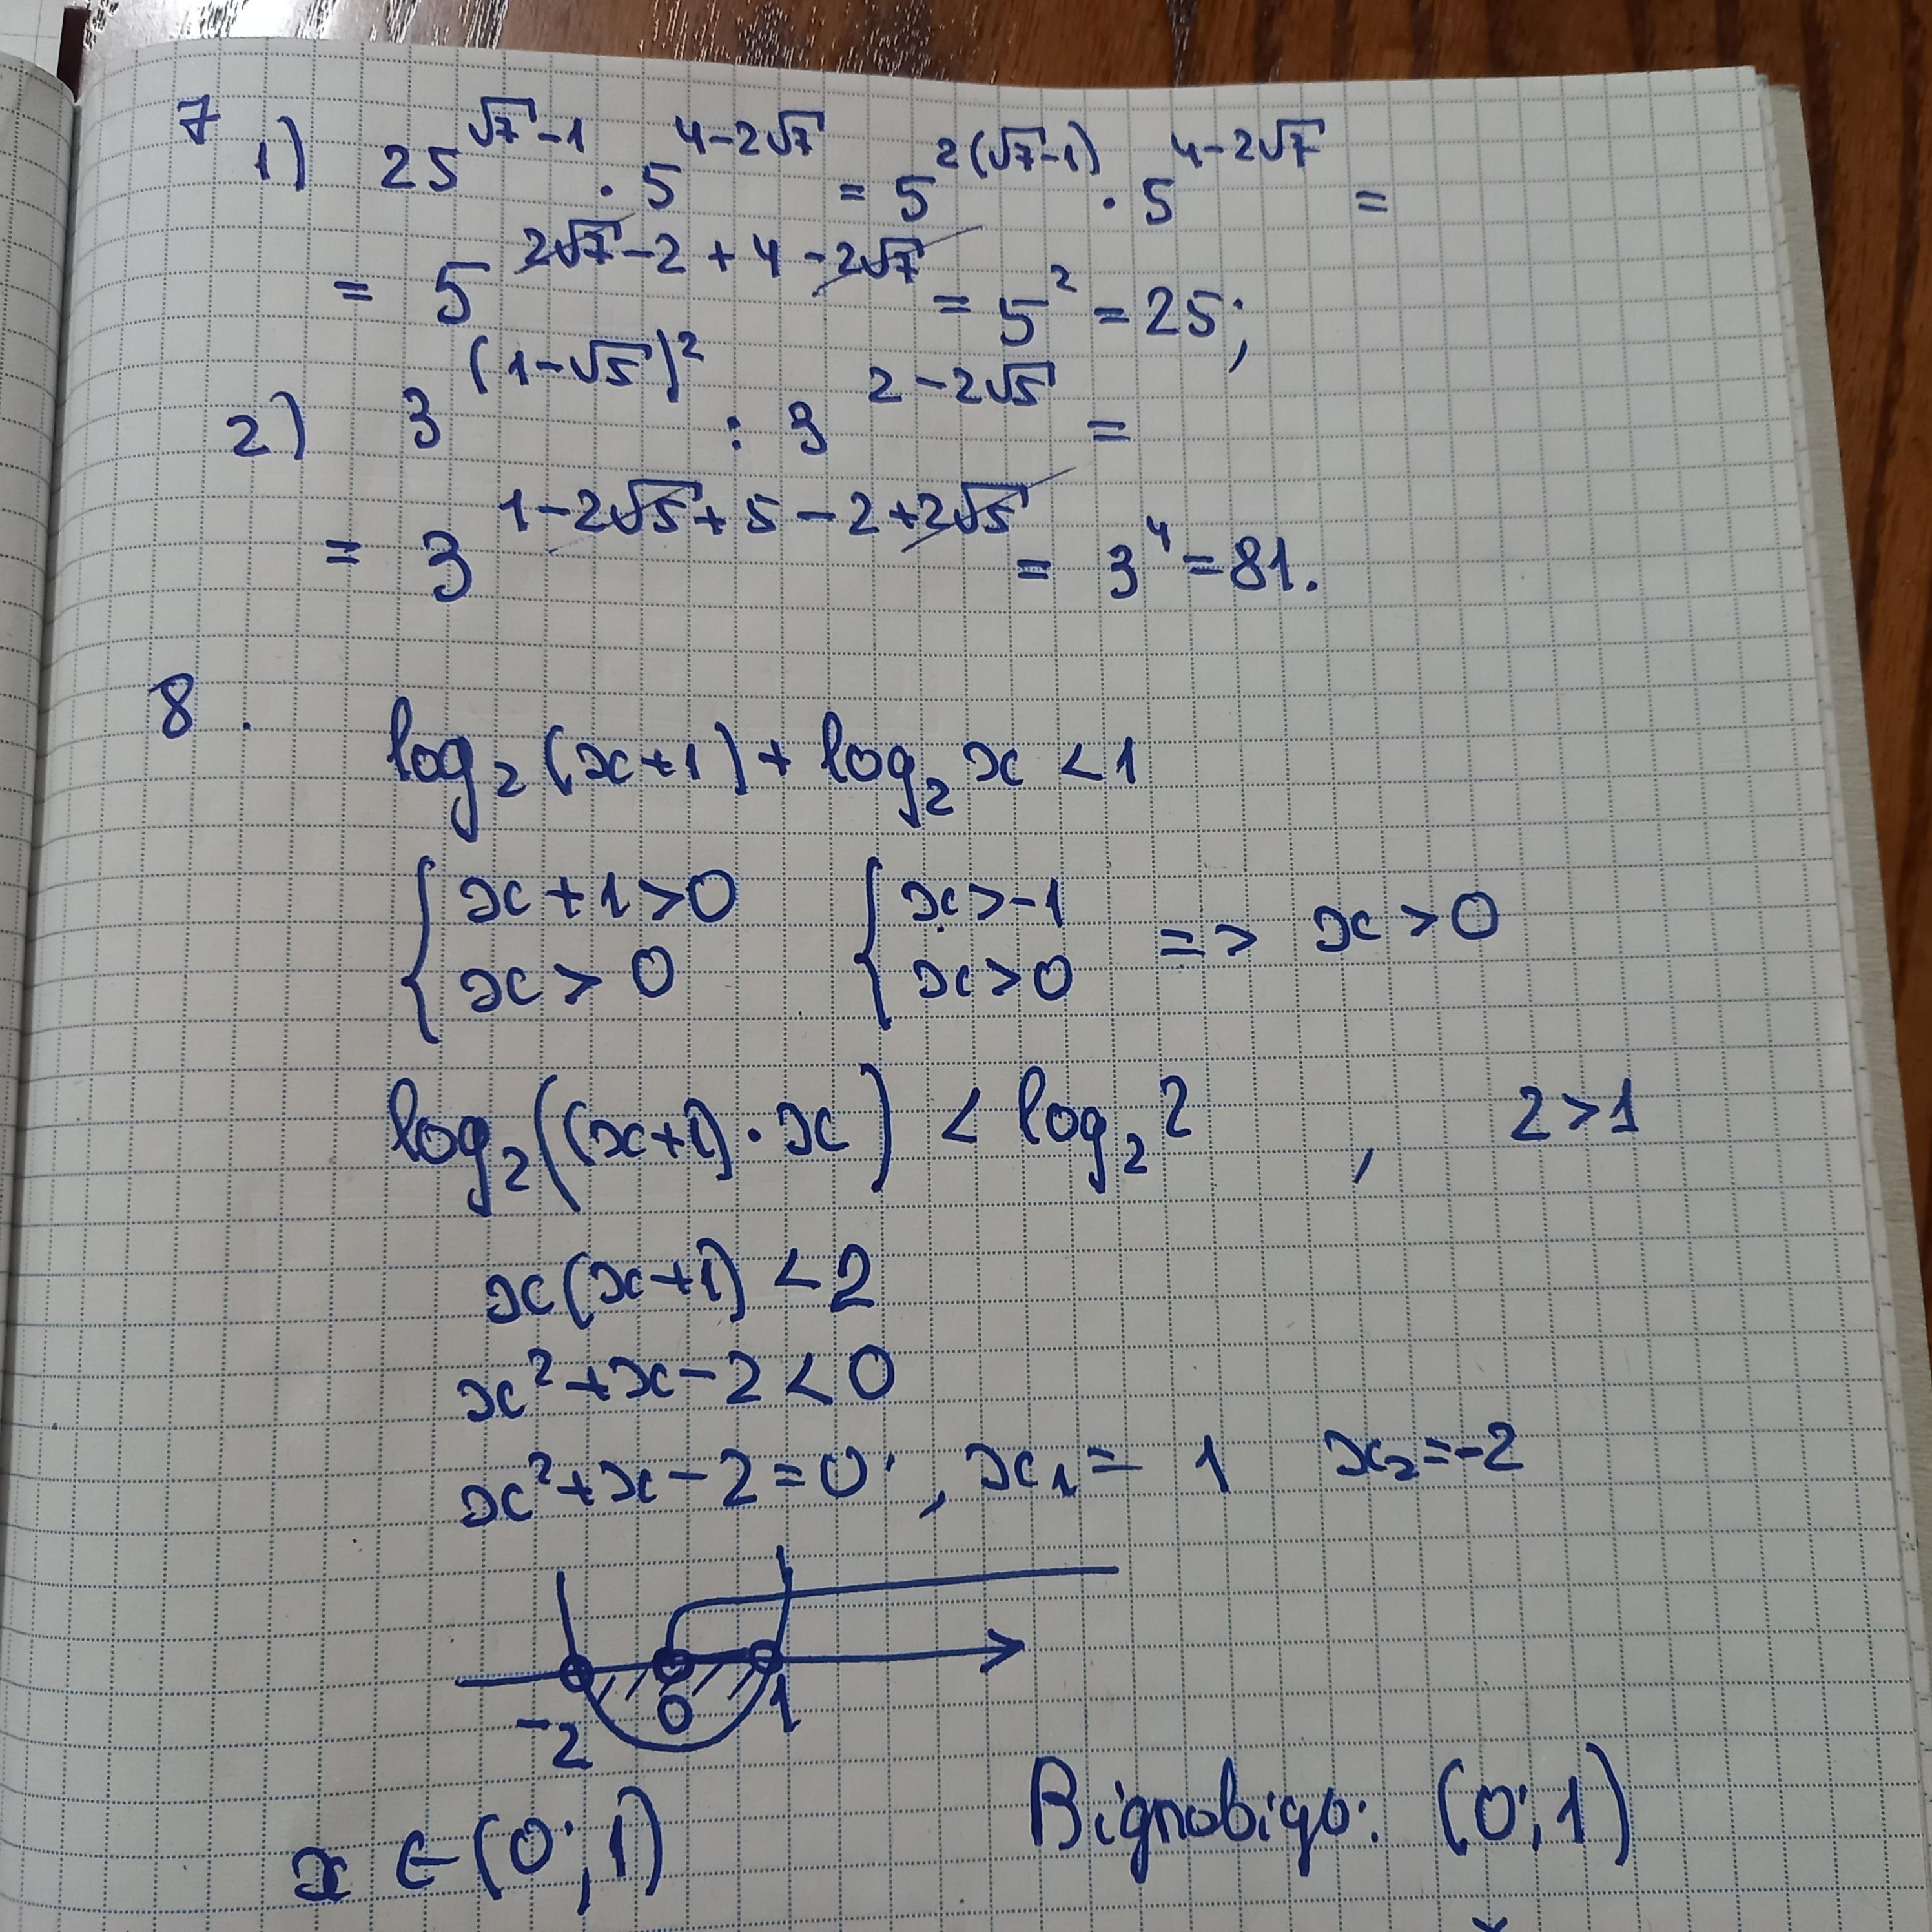 7
1) 25^(√7-1) · 5^(4-2√7) = 5^(2(√7-1)) · 5^(4-2√7) =
= 5^(2√7-2+4-2√7) = 5² = 25;
2) 3^((1-√5)²) : 3^(2-2√5) =
= 3^(1-2√5+5-2+2√5) = 3⁴ = 81.
8.
log₂(x+1) + log₂x < 1
{ x+1>0 { x>-1 => x>0
{ x>0 { x>0
log₂((x+1)·x) < log₂2 , 2>1
x(x+1) < 2
x²+x-2<0
x²+x-2=0, x₁= 1 x₂=-2
-2 0 1
x ∈ (0;1) Відповідь: (0;1)